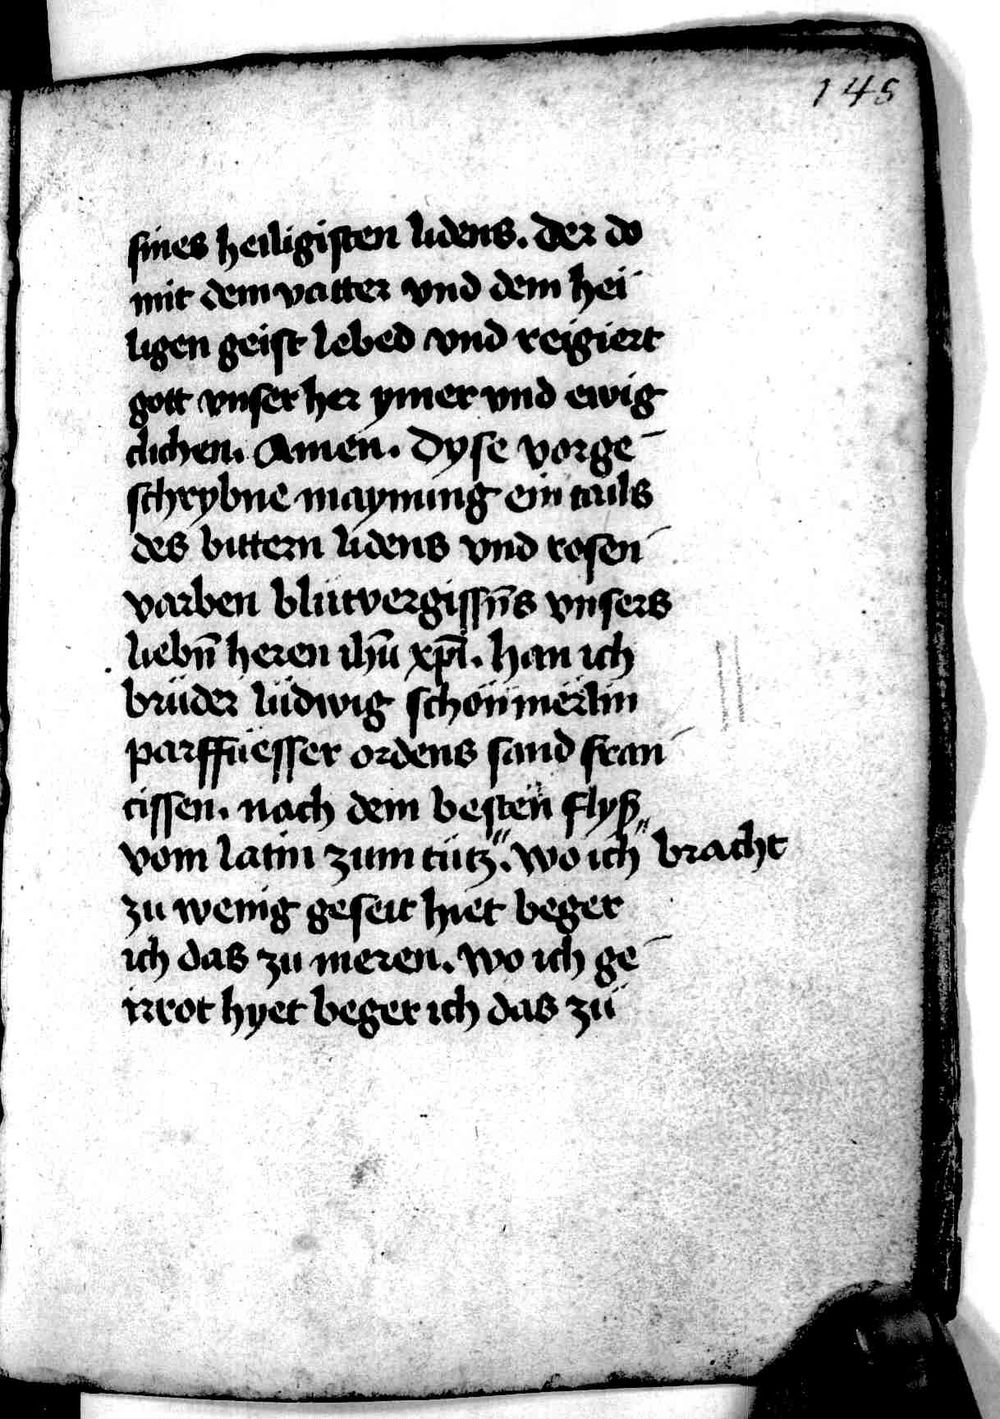 145
sines heiligisten lidens. Der do
mit dem vatter vnd dem hei¯
ligen geist lebed vnd reigiert
gott vnser her ymer vnd ewig
clichen. Amen. Dyse vorge¯
schrybne maynung ein tails
des bittern lidens vnd rosen¯
varben blütvergissn̄s vnsers
liebn̄ heren ihū xp̄i. han ich
brüder lüdwig schönmerlin
parffüesser ordens sand fran¯
cissen. nach dem besten flyß
vom latin zum tütz". wo ich "bracht
zu wenig geseit hiet beger
ich das zu meren. wo ich ge¯
irrot hyet beger ich das zü